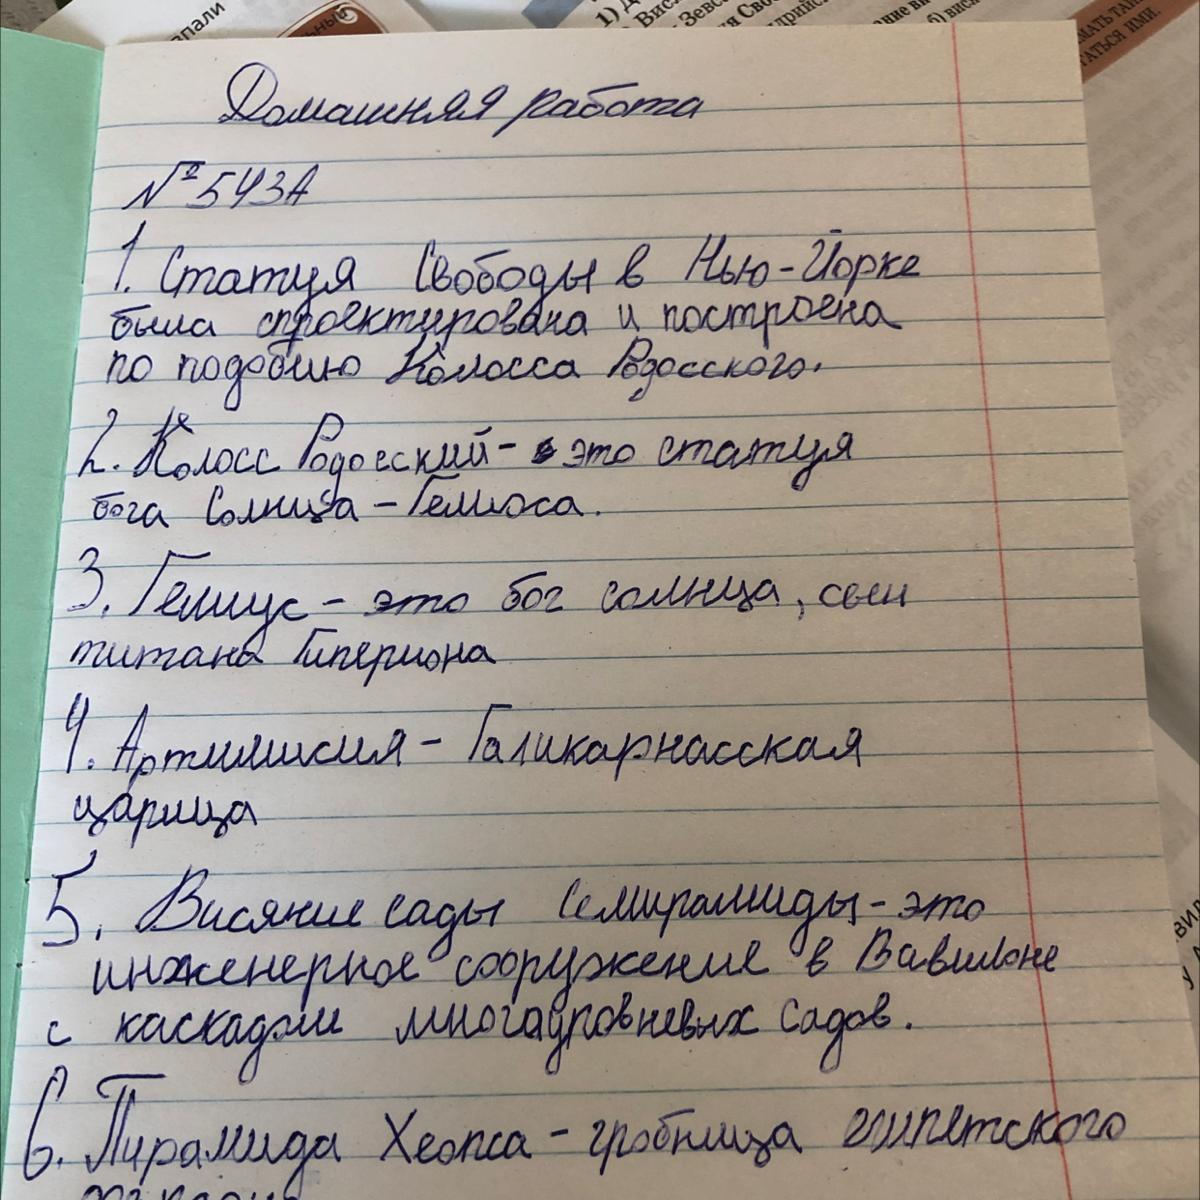 Домашняя работа
№543А
1. Статуя Свободы в Нью-Йорке
была спроектирована и построена
по подобию Колосса Родосского.
2. Колосс Родосский - это статуя
бога Солнца - Гелиоса.
3. Гелиус - это бог солнца, сын
титана Гипериона
4. Артимисия - Галикарнасская
царица
5. Висячие сады Семирамиды - это
инженерное сооружение в Вавилоне
с каскадом многауровневых садов.
6. Пирамида Хеопса - гробница египетского